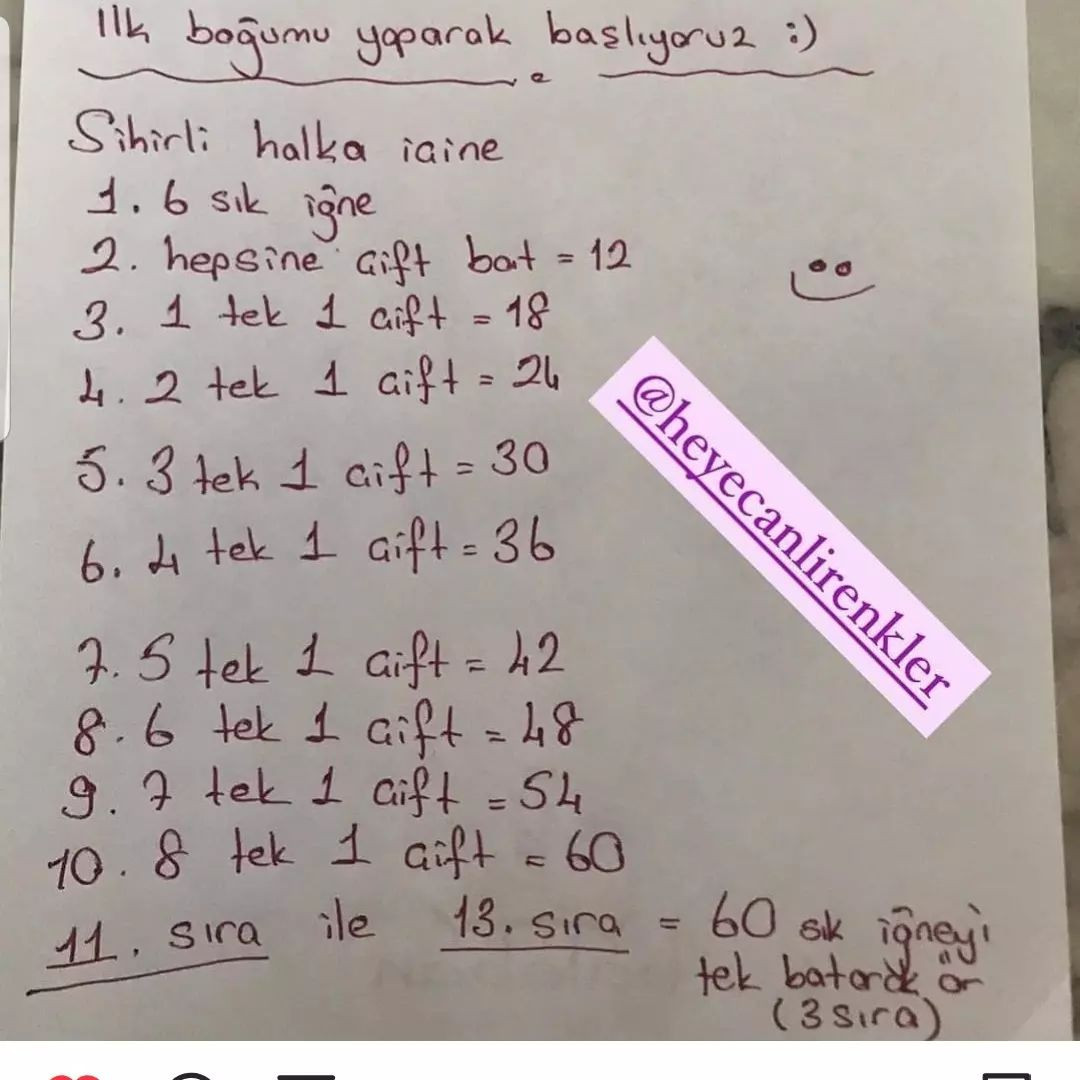 ilk boğumu yaparak başlıyoruz :)
Sihirli halka içine
1. 6 sık iğne
2. hepsine çift bat = 12
3. 1 tek 1 çift = 18
4. 2 tek 1 çift = 24
5. 3 tek 1 çift = 30
6. 4 tek 1 çift = 36
7. 5 tek 1 çift = 42
8. 6 tek 1 çift = 48
9. 7 tek 1 çift = 54
10. 8 tek 1 çift = 60
11. sıra ile 13. sıra = 60 sık iğneyi
tek batarak ör
(3 sıra)
@heyecanlirenkler